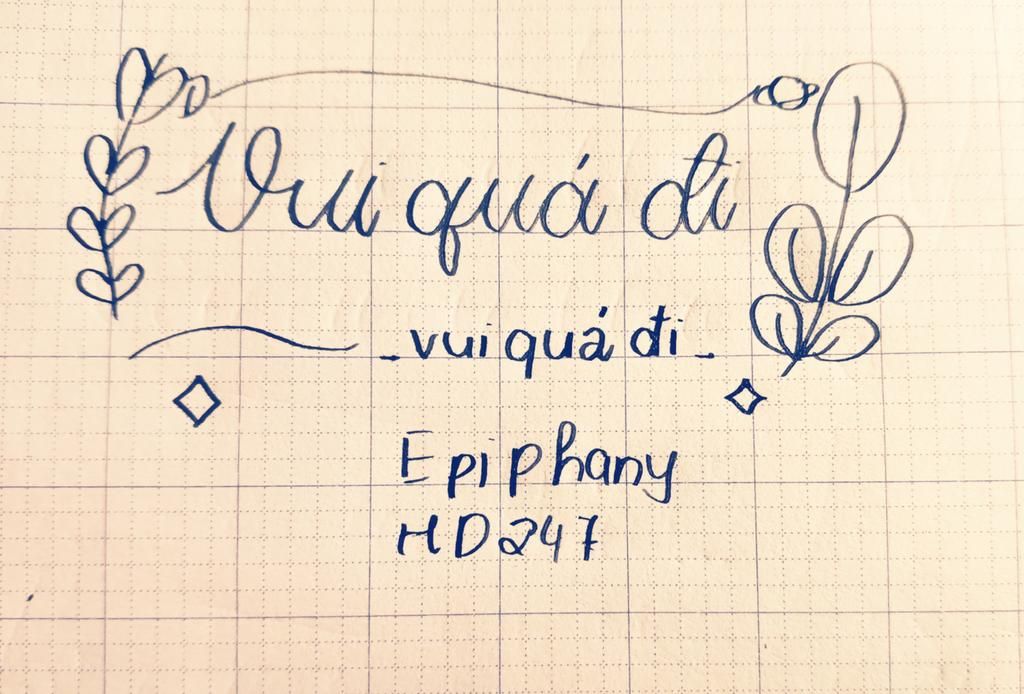 Vui quá đi
_vui quá đi_
Epiphany
HD247